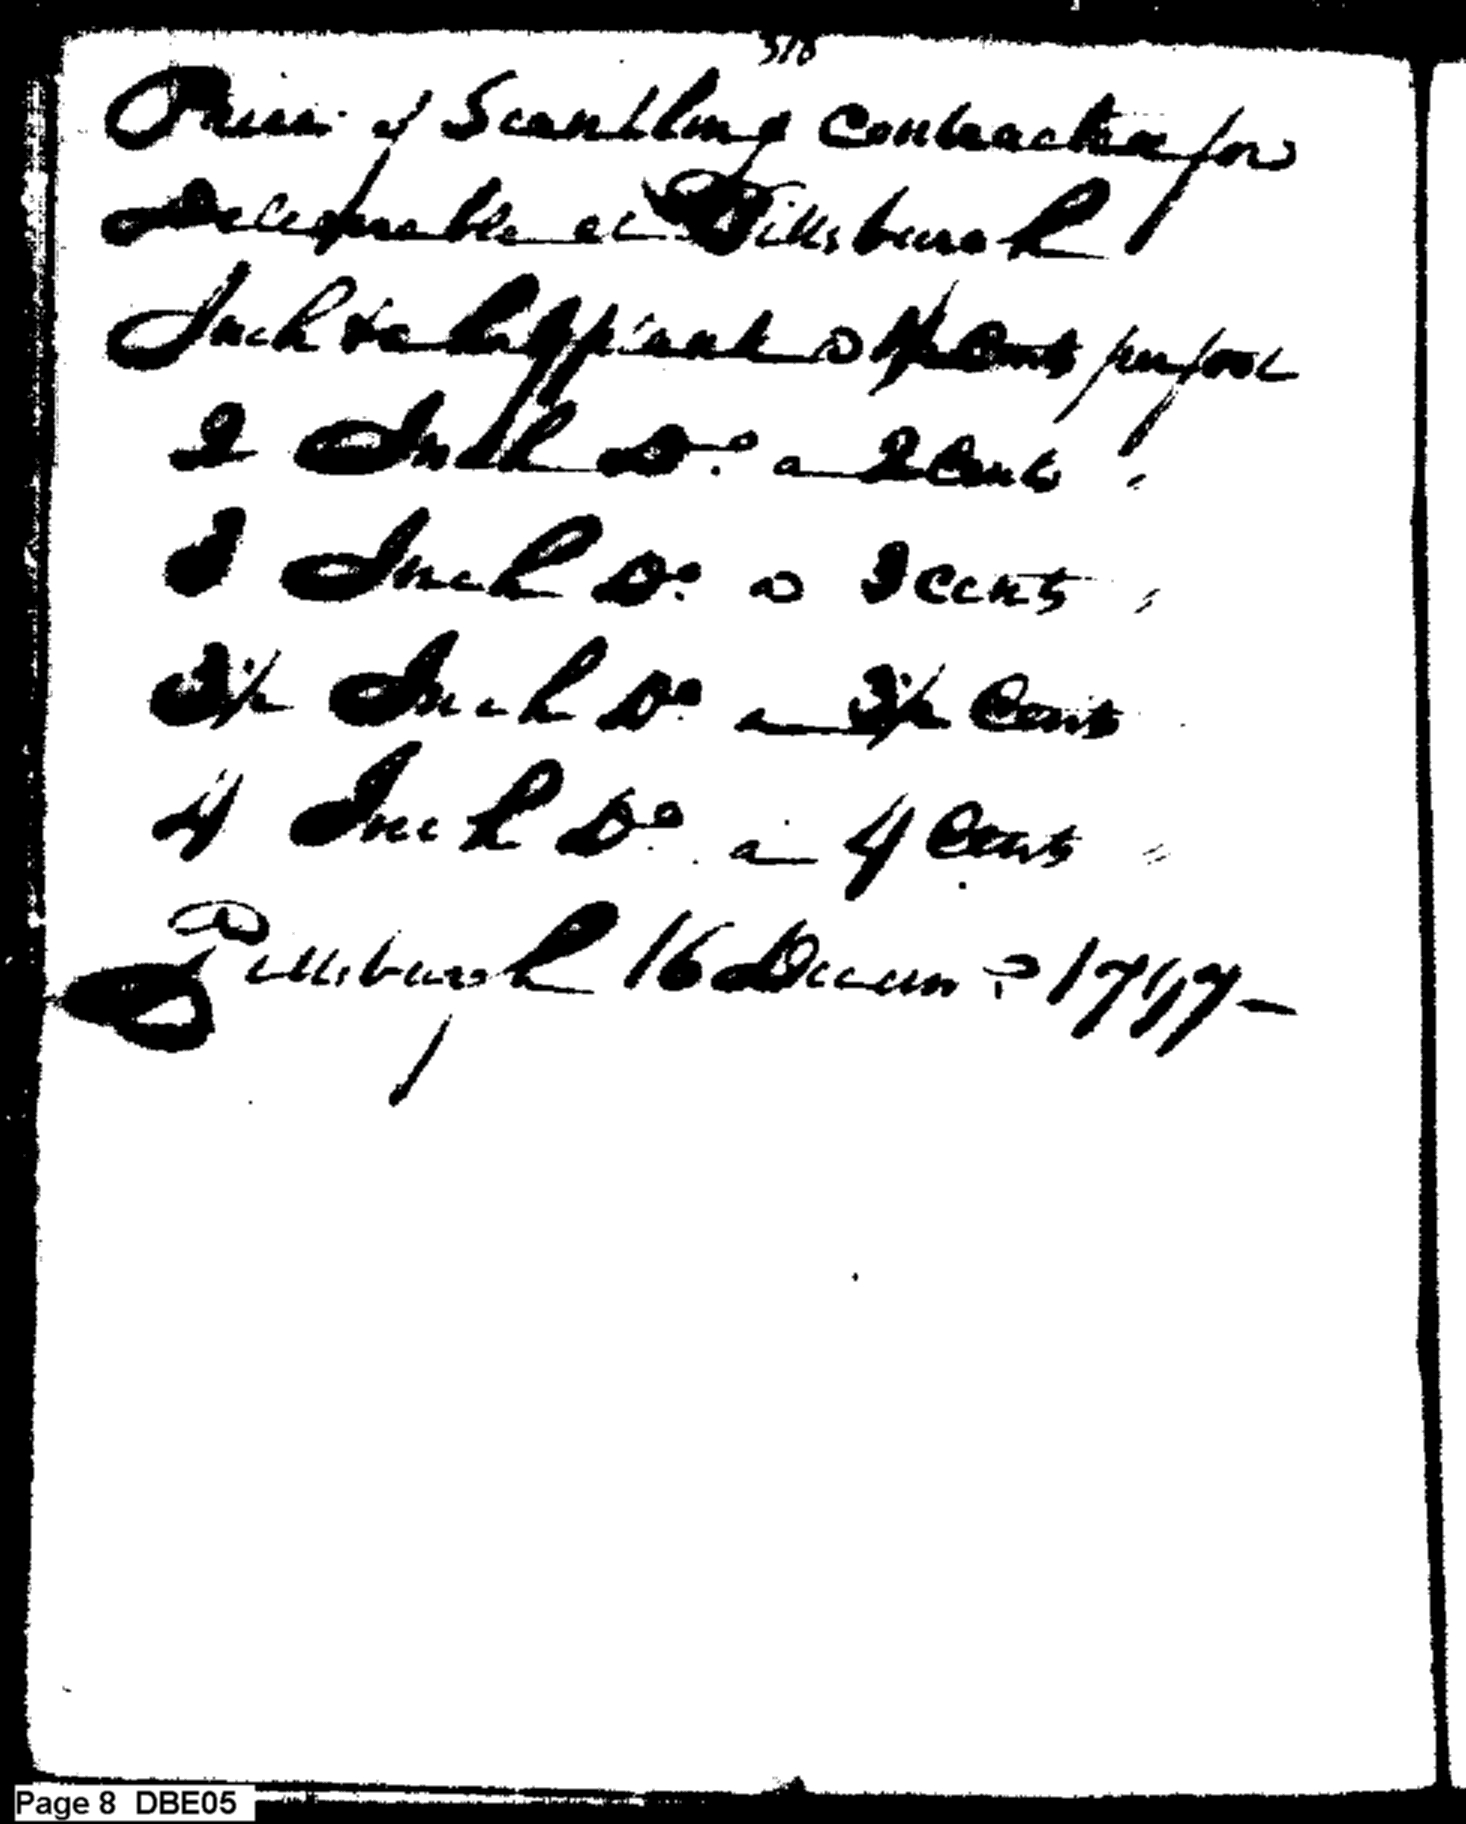 318
Price of Scantling Contracted for
Deliverable at Pittsburgh
Inch & a half plank a 1½ Cents per foot
2 Inch Do. a 2 Cents "
3 Inch Do. a 3 Cents "
3½ Inch Do a 3½ Cents
4 Inch Do a 4 Cents "
Pittsburgh 16 Decemr 1797 –
Page 8 DBE05